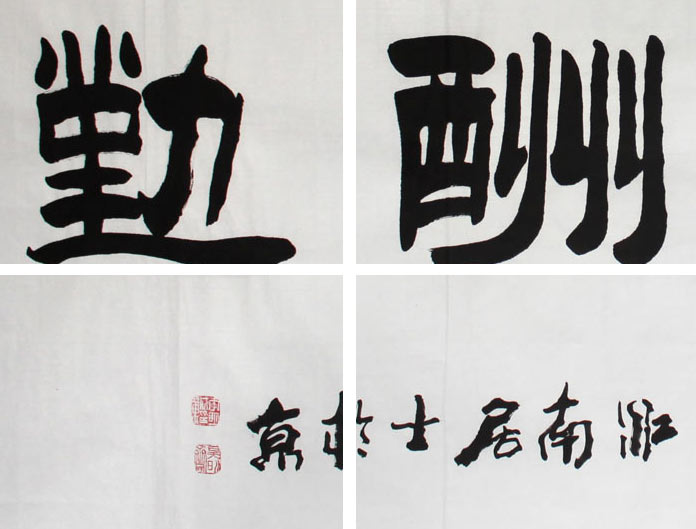 酬勤
南居士於京